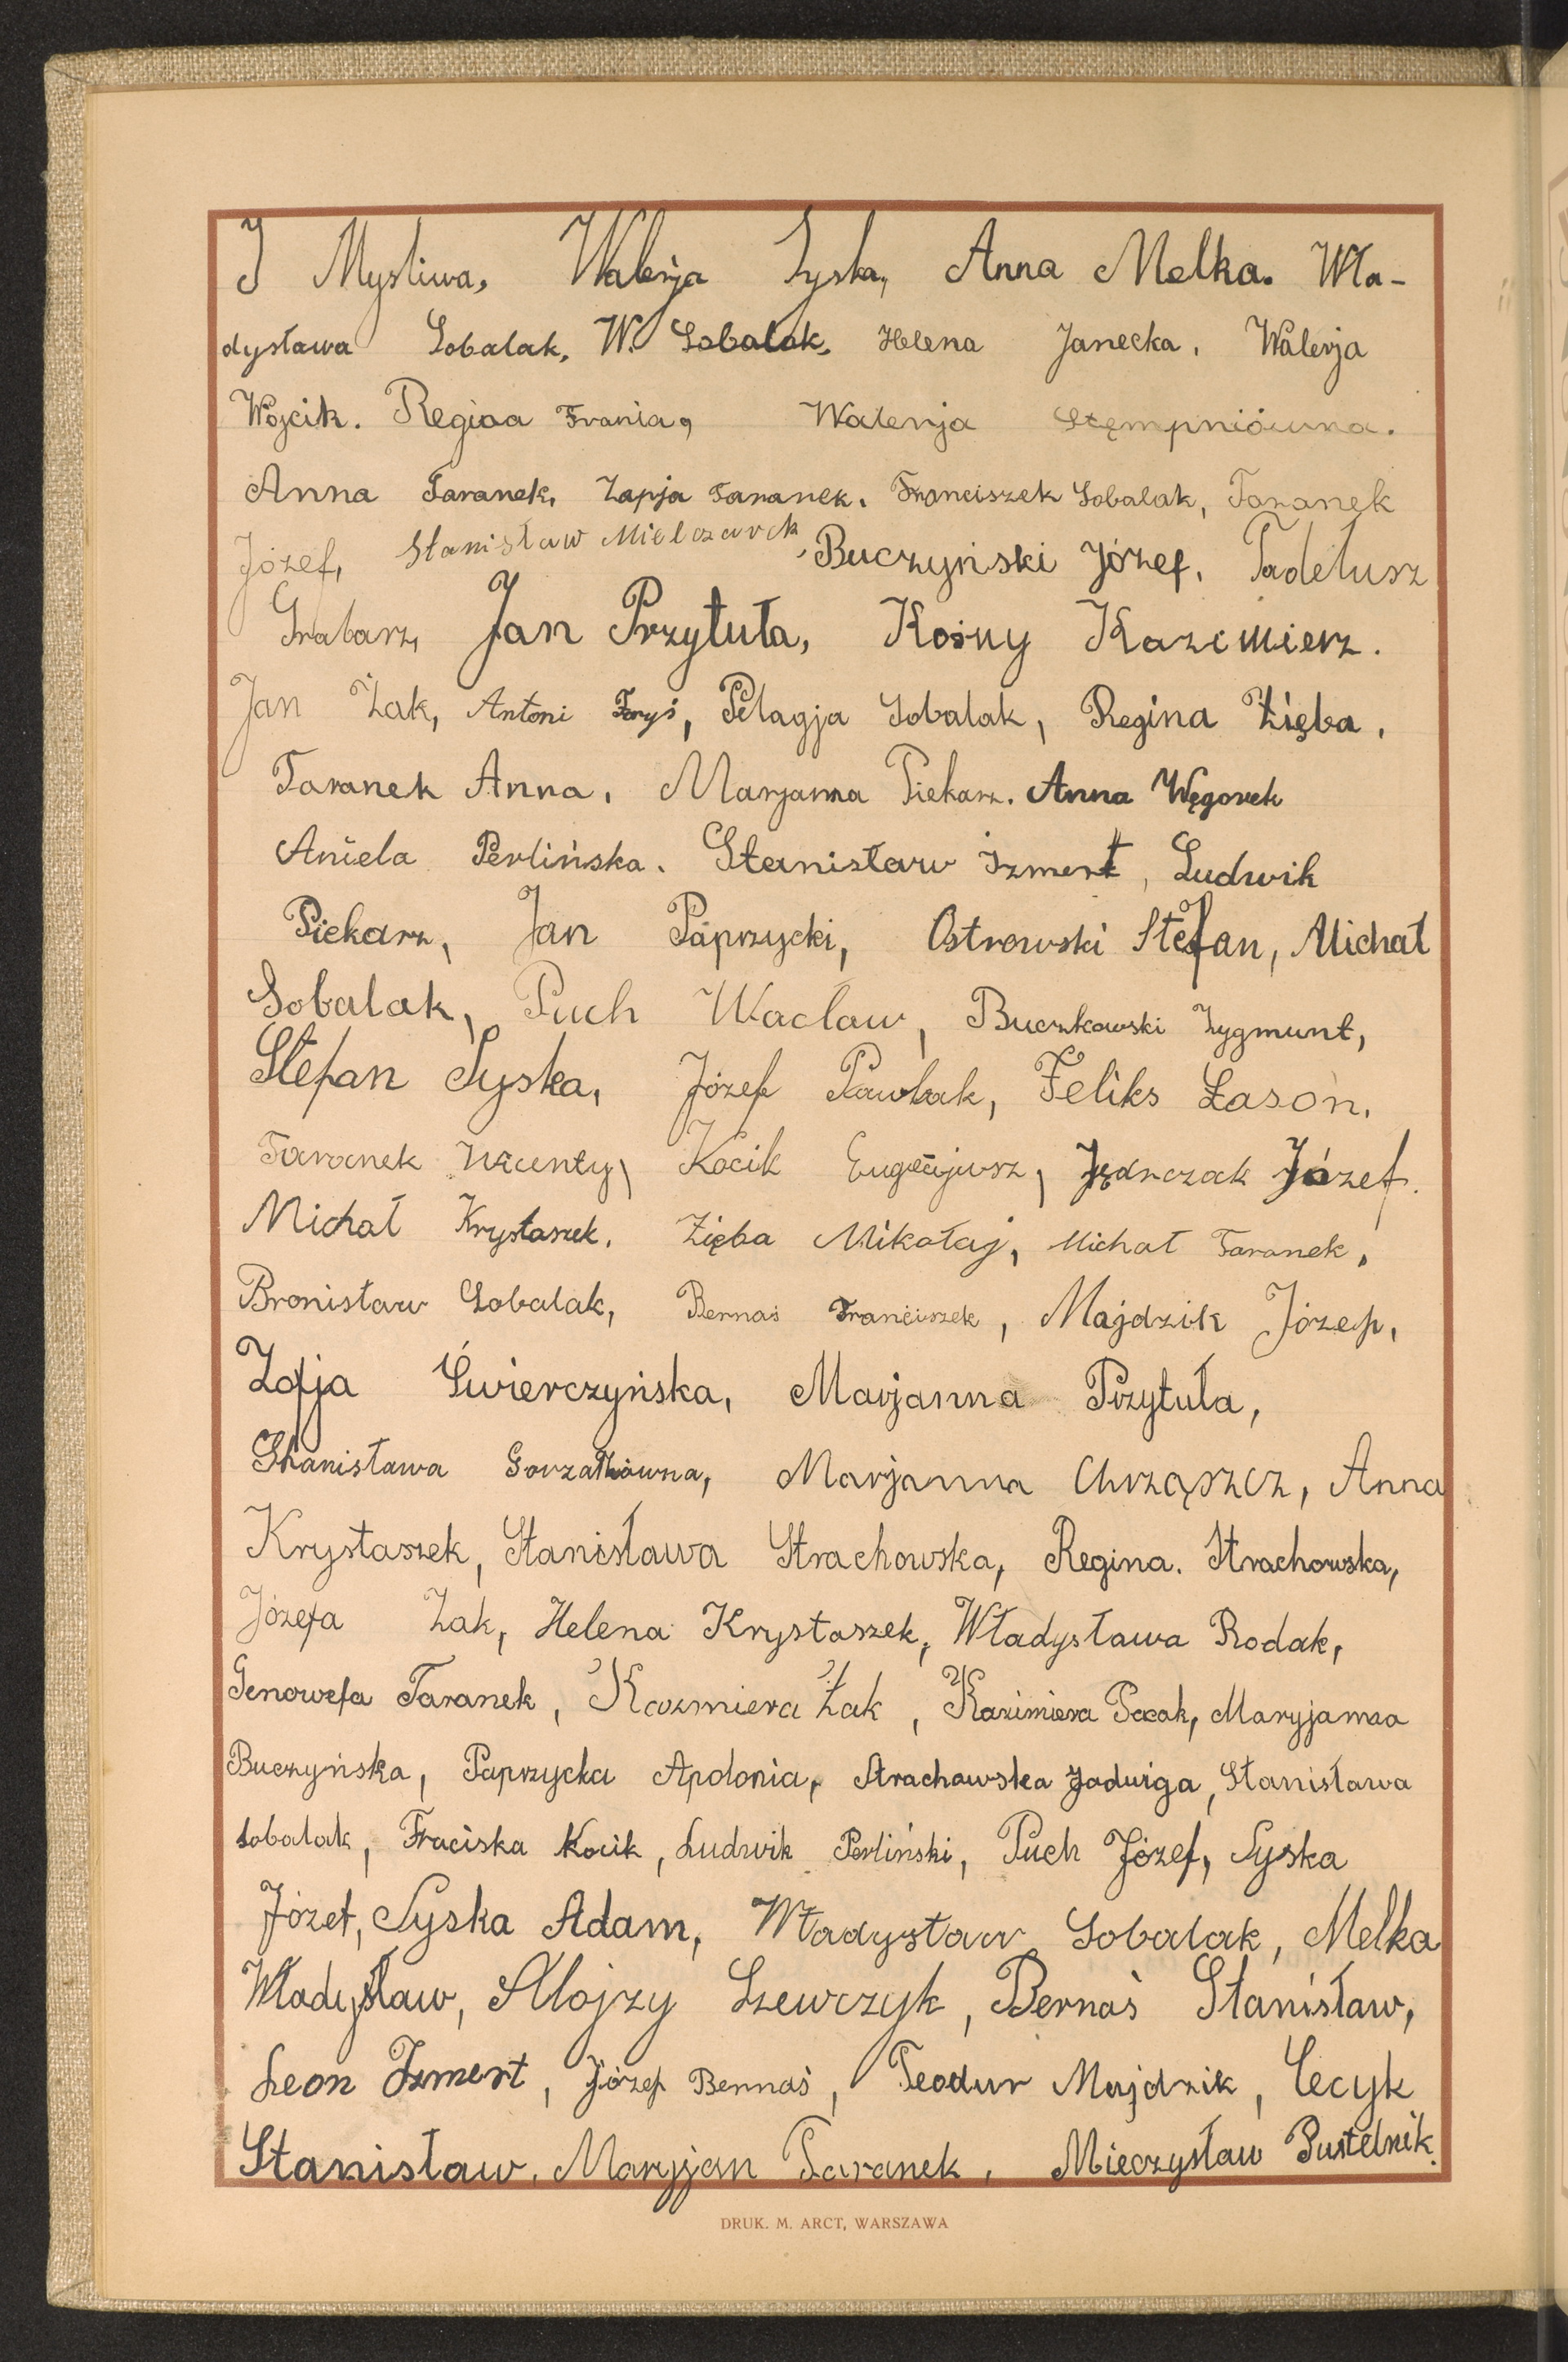 J Mysliwa, Walerja Syska, Anna Melka. Wła-
dysława Sobalak, W. Sobalak, Helena Janecka. Walerja
Wojcik. Regina Frania, Walerja Stęmpniówna.
Anna Taranek, Zapja Taranek. Franciszek Sobalak, Taranek
Józef, Stanisław Mielczarek, Buczyński Józef, Tadeusz
Grabarz, Jan Przytuła, Kośny Kazimierz.
Jan Żak, Antoni Foryś, Pelagja Sobalak, Regina Zięba,
Taranek Anna. Marjanna Piekarz. Anna Węgorek
Aniela Perlińska. Stanisław Izmert, Ludwik
Piekarz, Jan Paprzycki, Ostrowski Stefan, Michał
Sobalak, Puch Wacław, Buczkowski Zygmunt,
Stefan Syska, Józef Pawlak, Feliks Łasoń,
Taranek Wicenty, Kocik Eugenjusz, Jędrczak Józef.
Michał Krystaszek. Zięba Mikołaj, Michał Taranek,
Bronisław Sobalak, Bernaś Franciszek, Majdzik Józef,
Zofja Świerczyńska, Marjanna Przytuła,
Stanisława Gorzałkówna, Marjanna Chrząszcz, Anna
Krystaszek, Stanisława Strachowska, Regina. Strachowska,
Józefa Żak, Helena Krystaszek, Władysława Rodak,
Genowefa Taranek, Kazmiera Żak, Kazimiera Pacak, Maryjanna
Buczyńska, Paprzycka Apolonia, Strachowska Jadwiga, Stanisława
Sobalak, Fraciska Kocik, Ludwik Perliński, Puch Józef, Syska
Józef, Syska Adam, Władysław Sobalak, Melka
Władysław, Alojzy Szewczyk, Bernaś Stanisław,
Leon Izmert, Józef Bernaś, Teodur Majdzik, Cecyk
Stanisław, Maryjan Taranek, Mieczysław Pustelnik.
DRUK. M. ARCT, WARSZAWA